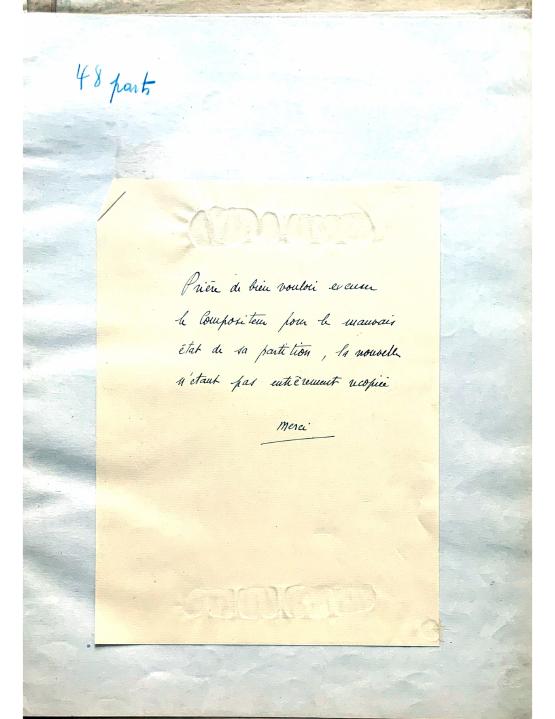 48 parts
Prière de bien vouloir excuser
le Compositeur pour le mauvais
état de sa partition, la nouvelle
n'étant pas entièrement recopiée
Merci